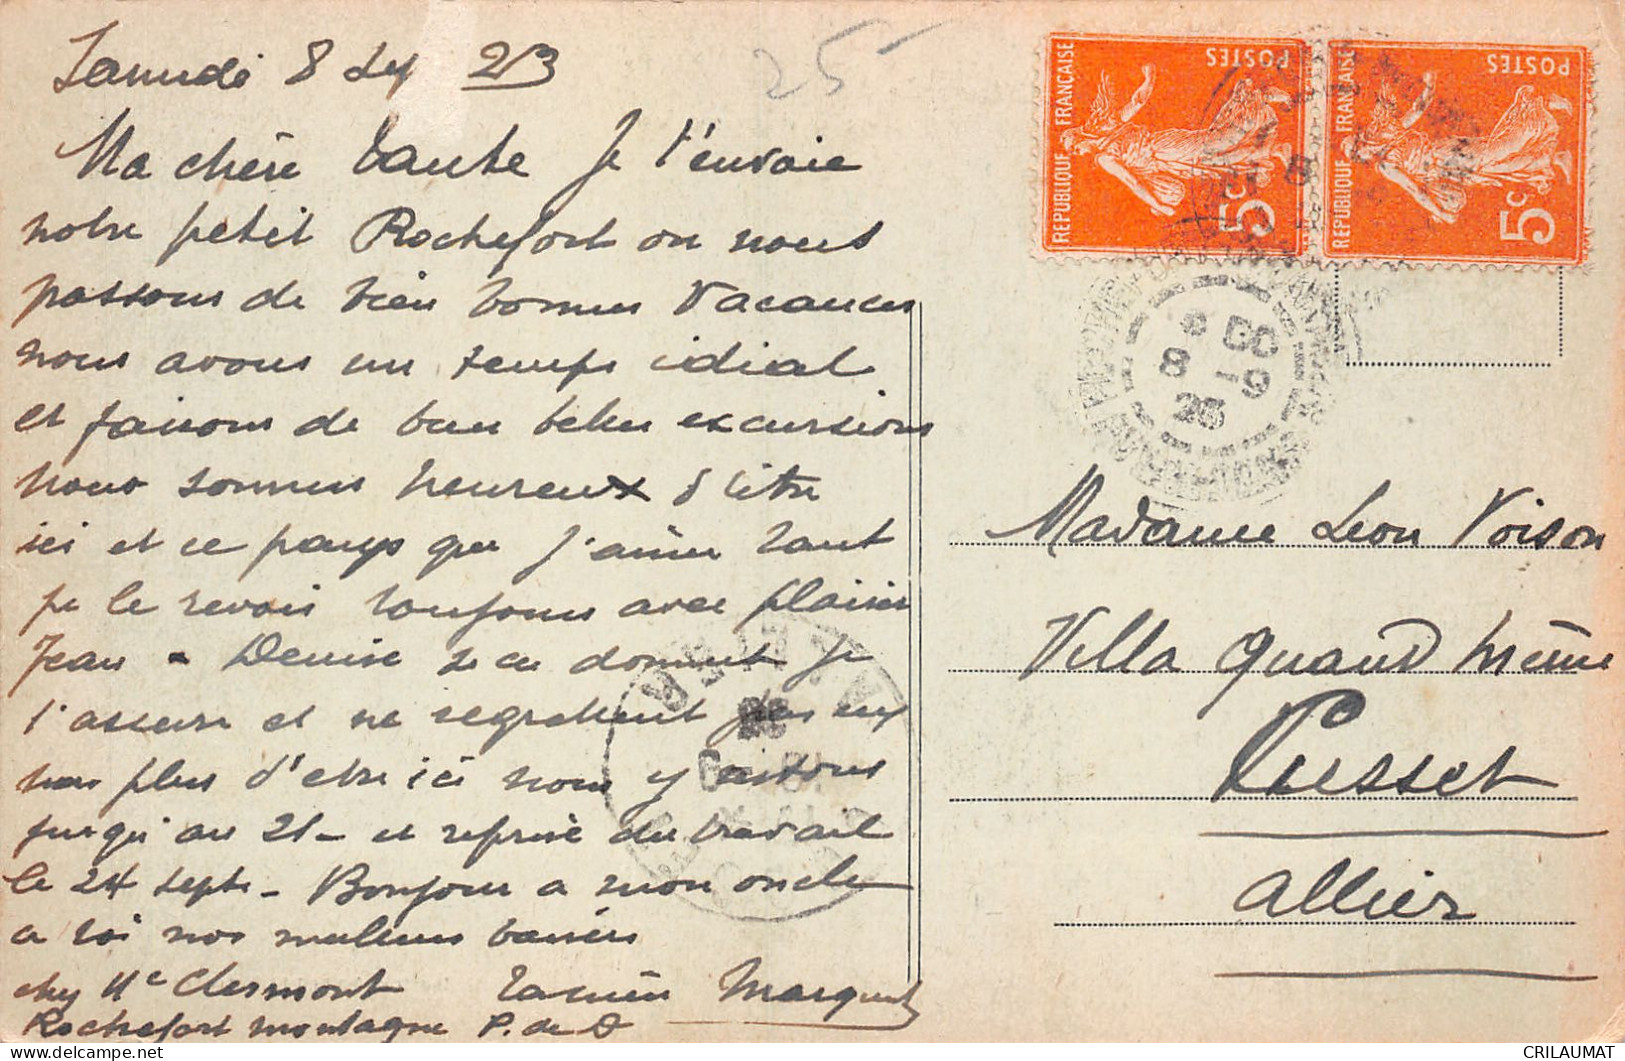 Samedi 8 Sep 23
25-
Ma chère tante Je t'envoie
notre petit Rochefort ou nous
passons de bien bonnes vacances
nous avons un temps idial
et faisons de bien belles excursions
nous sommes heureux d'être
ici et ce pays que j'aime tant
je le revois toujours avec plaisir
Jean - Denise se donnent je
t'assure et ne regrettent pas eux
non plus d'etre ici nous y restons
jusqu'au 21- et reprise du travail
le 24 Sept. - Bonjour a mon oncle
a toi nos meilleurs baisers
chez Me Clermont
Marquet
Rochefort montagne P. de D
REPUBLIQUE FRANÇAISE
POSTES
5c
REPUBLIQUE FRANÇAISE
POSTES
5c
8 -9
23
Madame Leon Voison
Villa Quand même
Cusset
Allier
CRILAUMAT